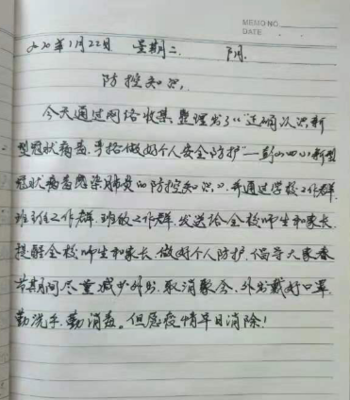 MEMO NO.
DATE
2020年1月22日 星期二 阴
防控知识
今天通过网络收集整理出了"正确认识新
型冠状病毒,严格做好个人安全防护"一彭山四小新型
冠状病毒感染肺炎的防控知识,并通过学校工作群
班主任工作群,班级工作群,发送给全校师生和家长,
提醒全校师生和家长,做好个人防护,倡导大家春
节期间尽量减少外出,取消聚会,外出戴好口罩,
勤洗手,勤消毒。但愿疫情早日消除!